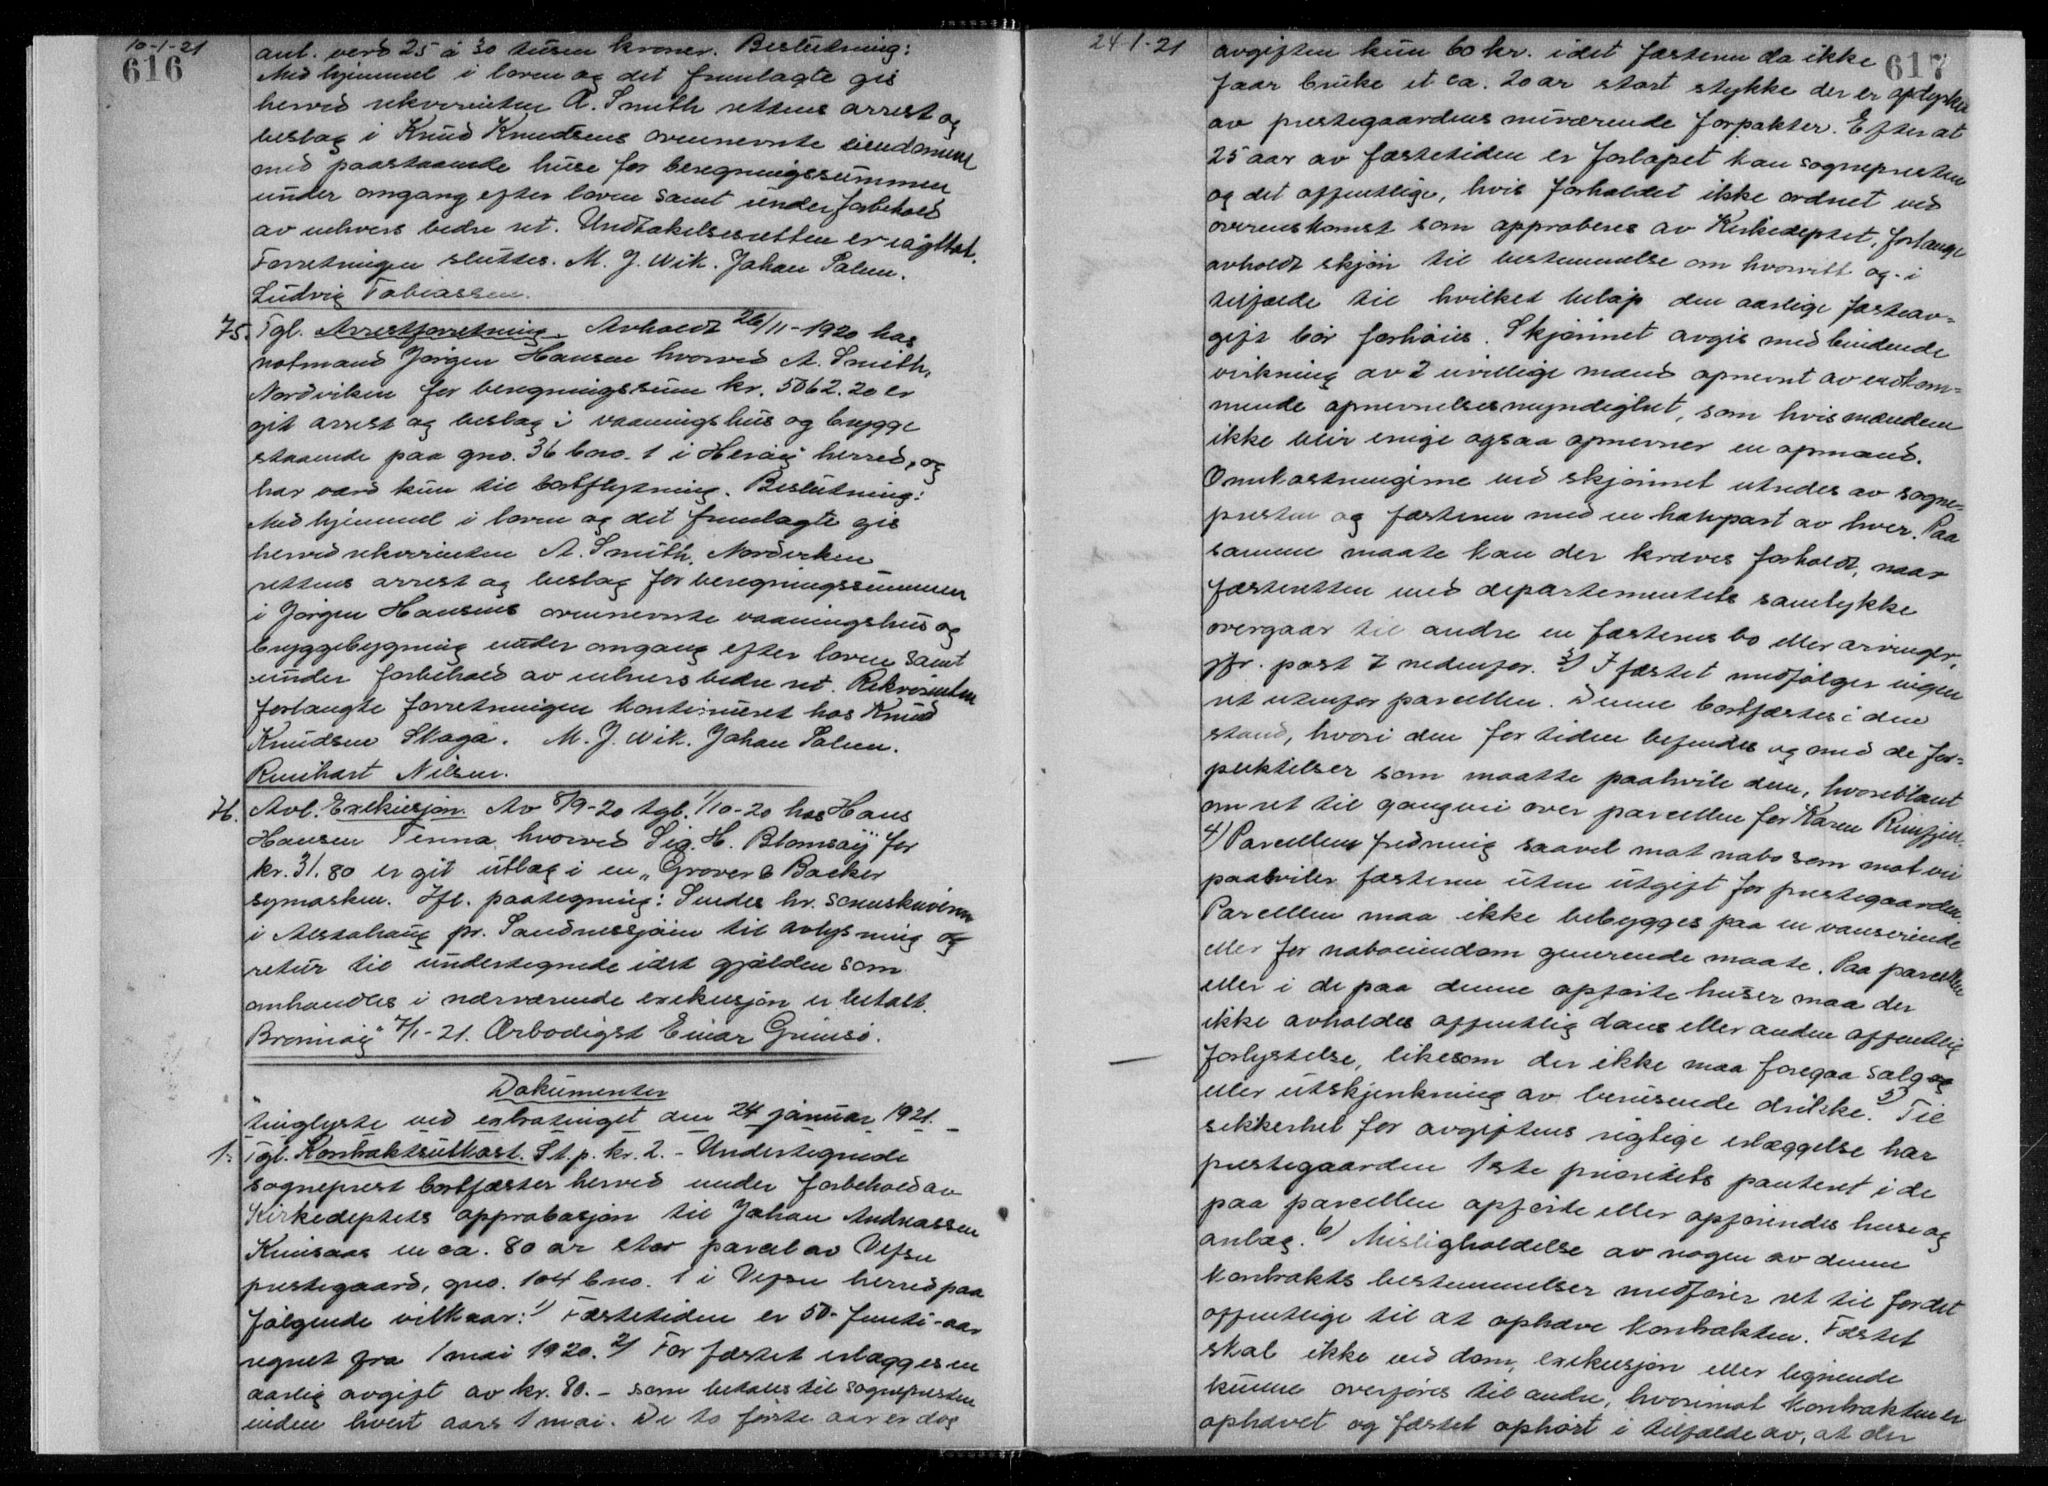 10-1-21
616
ant. verd 25 à 30 tusen kroner. Beslutning:
Med hjemmel i loven og det fremlagte gis
herved rekvirenten A. Smith rettens arrest og
beslag i Knud Knudsens ovennevnte eiendommer
med paastaaende huse for beregningssummen
under omgang efter loven samt under forbehold
av enhvers bedre ret. Undtakelsesretten er iagttat.
Forretningen sluttes. M. J. Wik. Johan Palm.
Ludvig Tobiassen.
75. Tgl. Arrestforretning. Avholdt 26/11-1920 hos
notmand Jørgen Hansen hvorved A. Smith,
Nordviken for beregningssum kr. 5062.20 er
git arrest og beslag i vaaningshus og brygge
staaende paa gno. 36 bno. 1 i Herøy herred, og
har værd kun til bortflytning. Beslutning:
Med hjemmel i loven og det fremlagte gis
herved rekvirenten A. Smith, Nordviken
rettens arrest og beslag for beregningssummen
i Jørgen Hansens ovennevnte vaaningshus og
bryggebygning under omgang efter loven samt
under forbehold av enhvers bedre ret. Rekvirenten
forlangte forretningen kontinueret hos Knud
Knudsen Skaga. M. J. Wik. Johan Palm.
Reinhart Nilsen.
76. Avl. Exekusjon. Av 8/9-20 tgl. 1/10-20 hos Hans
Hansen Tenna hvorved Sig. H. Blomsøy for
kr. 31.80 er git utlæg i en "Grover & Backer
symaskin. Ifl. paategning: Sendes hr. sorenskriveren
i Alstahaug pr. Sandnessjøen til avlysning og
retur til undertegnede idet gjælden som
omhandles i nærværende exekusjon er betalt.
Brønnøy 7/1-21. Ærbødigst Einar Grimsø.
Dokumenter
tinglyste ved extratinget den 24 januar 1921.
1. Tgl. Kontraktsutkast. St. p. kr. 2. - Undertegnede
sogneprest bortfæster herved under forbehold av
Kirkedeptets approbasjon til Johan Andreassen
Kuisaas en ca. 80 ar stor parcel av Vefsn
prestegaard, gno. 104 bno. 1 i Vefsn herred paa
følgende vilkaar: 1) Fæstetiden er 50-femti-aar
regnet fra 1 mai 1920. 2) For fæstet erlægges en
aarlig avgift av kr. 80. - som betales til sognepresten
inden hvert aars 1 mai. De to første aar er dog
24-1-21
617
avgiften kun 60 kr. idet fæsteren da ikke
faar bruke et ca. 20 ar stort stykke der er opdyrket
av prestegaardens nuværende forpakter. Efter at
25 aar av fæstetiden er forløpet kan sognepresten
og det offentlige, hvis forholdet ikke ordnet ved
overenskomst som approberes av Kirkedeptet, forlange
avholdt skjøn til bestemmelse om hvorvidt og - i
tilfælde til hvilket beløp den aarlige fæsteav-
gift bør forhøies. Skjønnet avgis med bindende
virkning av 2 uvillige mænd opnevnt av vedkom-
mende opnevnelsesmyndighet, som hvis mændene
ikke blir enige ogsaa opnevner en opmand.
Omkostningerne ved skjønnet utredes av sogne-
presten og fæsteren med en halvpart av hver. Paa
samme maate kan der kræves forholdt, naar
fæsteretten med departementets samtykke
overgaar til andre en fæsterens bo eller arvinger,
jfr. post 7 nedenfor. 3) I fæstet medfølger ingen
ret utenfor parcellen. Denne bortfæstes i den
stand, hvori den for tiden befindes og med de for-
pliktelser som maatte paahvile den, hvoriblant
om ret til gangvei over parcellen for Karen Reinfjell.
4) Parcellens fredning saavel mot nabo som mot vei
paahviler fæsteren uten utgift for prestegaarden.
Parcellen maa ikke bebygges paa en vansirende
eller for naboeiendom generende maate. Paa parcellen
eller i de paa denne opførte huser maa der
ikke avholdes offentlig dans eller anden offentlig
forlystelse, likesom der ikke maa foregaa salg og
eller utskjenkning av berusende drikke. 5) Til
sikkerhet for avgiftens rigtige erlæggelse har
prestegaarden 1ste prioritets panteret i de
paa parcellen opførte eller opførendes huse og
anlæg. 6) Misligholdelse av nogen av denne
kontrakts bestemmelser medfører ret til for det
offentlige til at ophæve kontrakten. Fæstet
skal ikke ved dom, exekusjon eller lignende
kunne overføres til andre, hvorimot kontrakten er
ophævet og fæstet ophørt i tilfælde av, at der